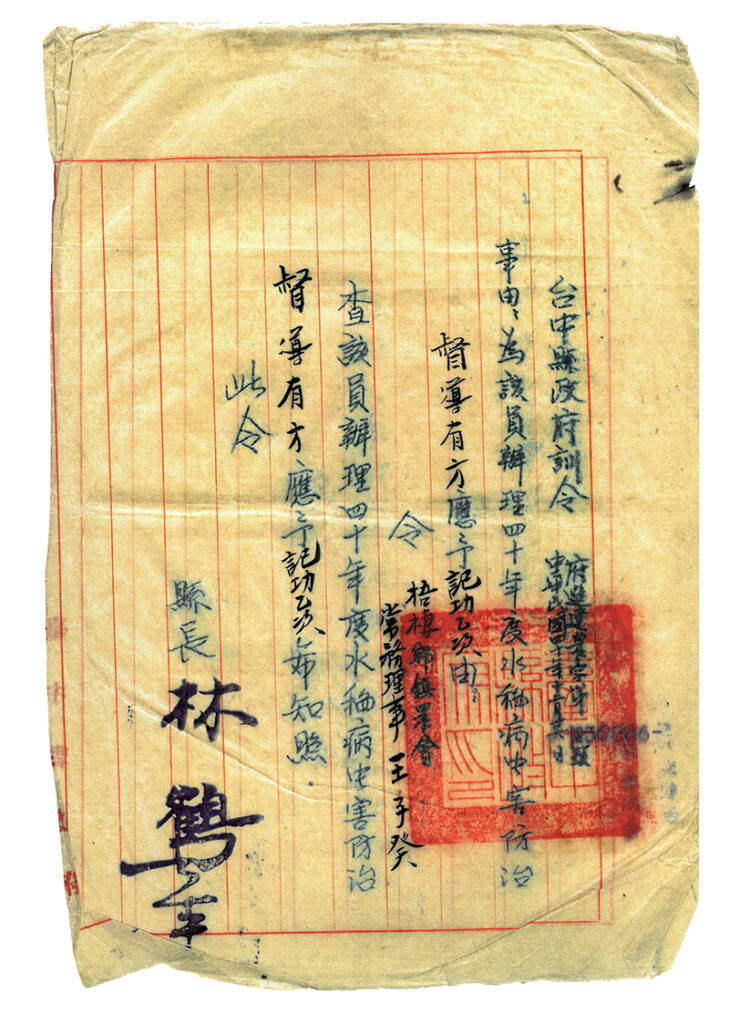 台中縣政府訓令
中華民國四十年
事由：為該員辦理四十年度水稻病虫害防治
督導有方應予記功乙次由。
令
梧棲鄉鎮農會
常務理事王子癸
查該員辦理四十年度水稻病虫害防治
督導有方應予記功乙次希知照
此令
縣長
林鶴年